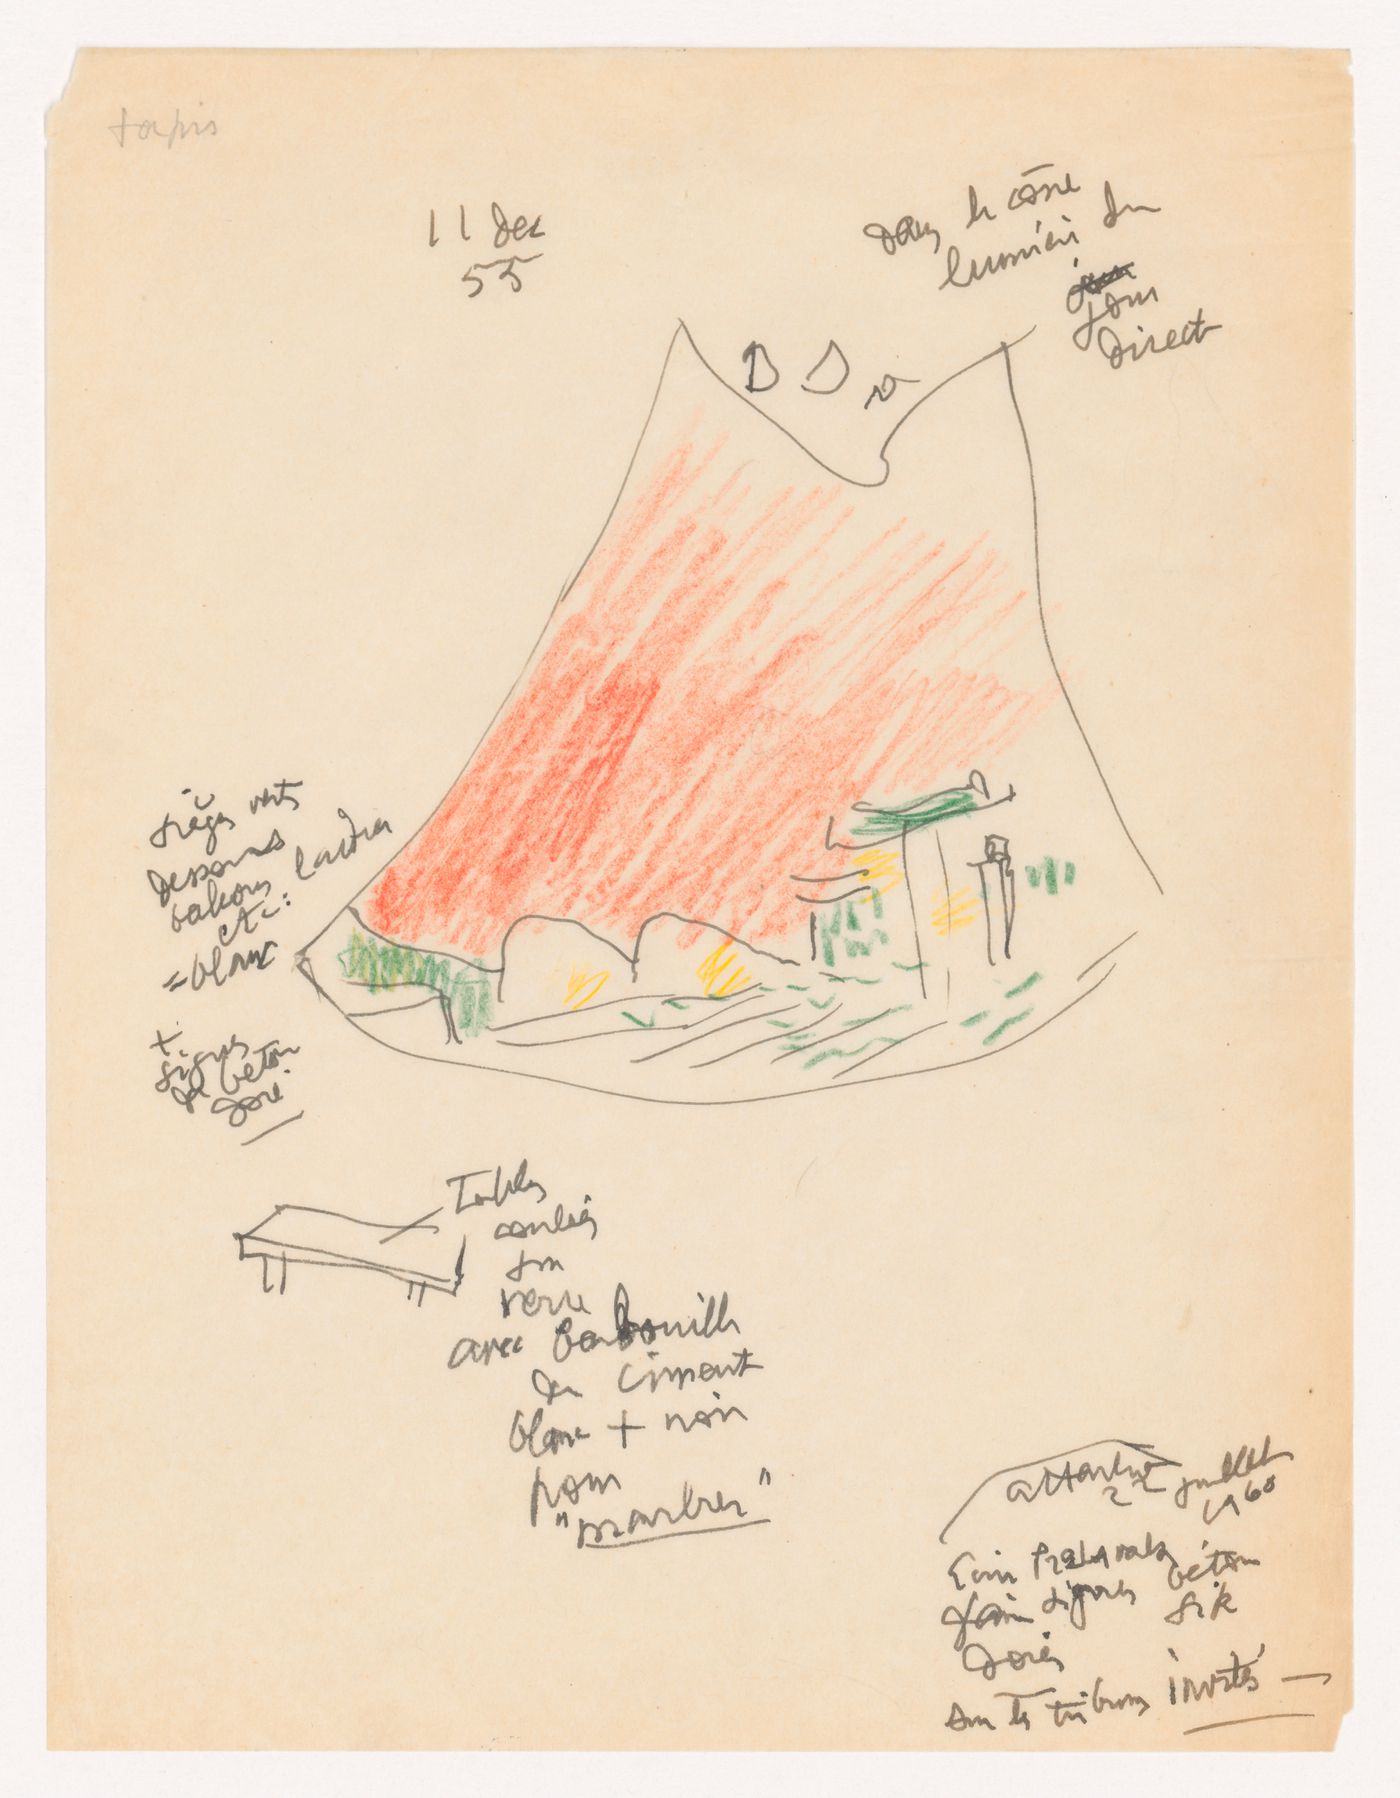 tapis
11 Dec
55
Dans le cône
lumière du
jour
Direct
sièges verts
dessous
balcons laideur
etc:
= blanc
+
signes
de béton
doré.
Tables
coulées
sur
verre
avec barbouille
de ciment
blanc + noir
pour
"marbrer"
attention
22 juillet
1960
faire signes béton
Sik
dorés
sur les tribunes invités —